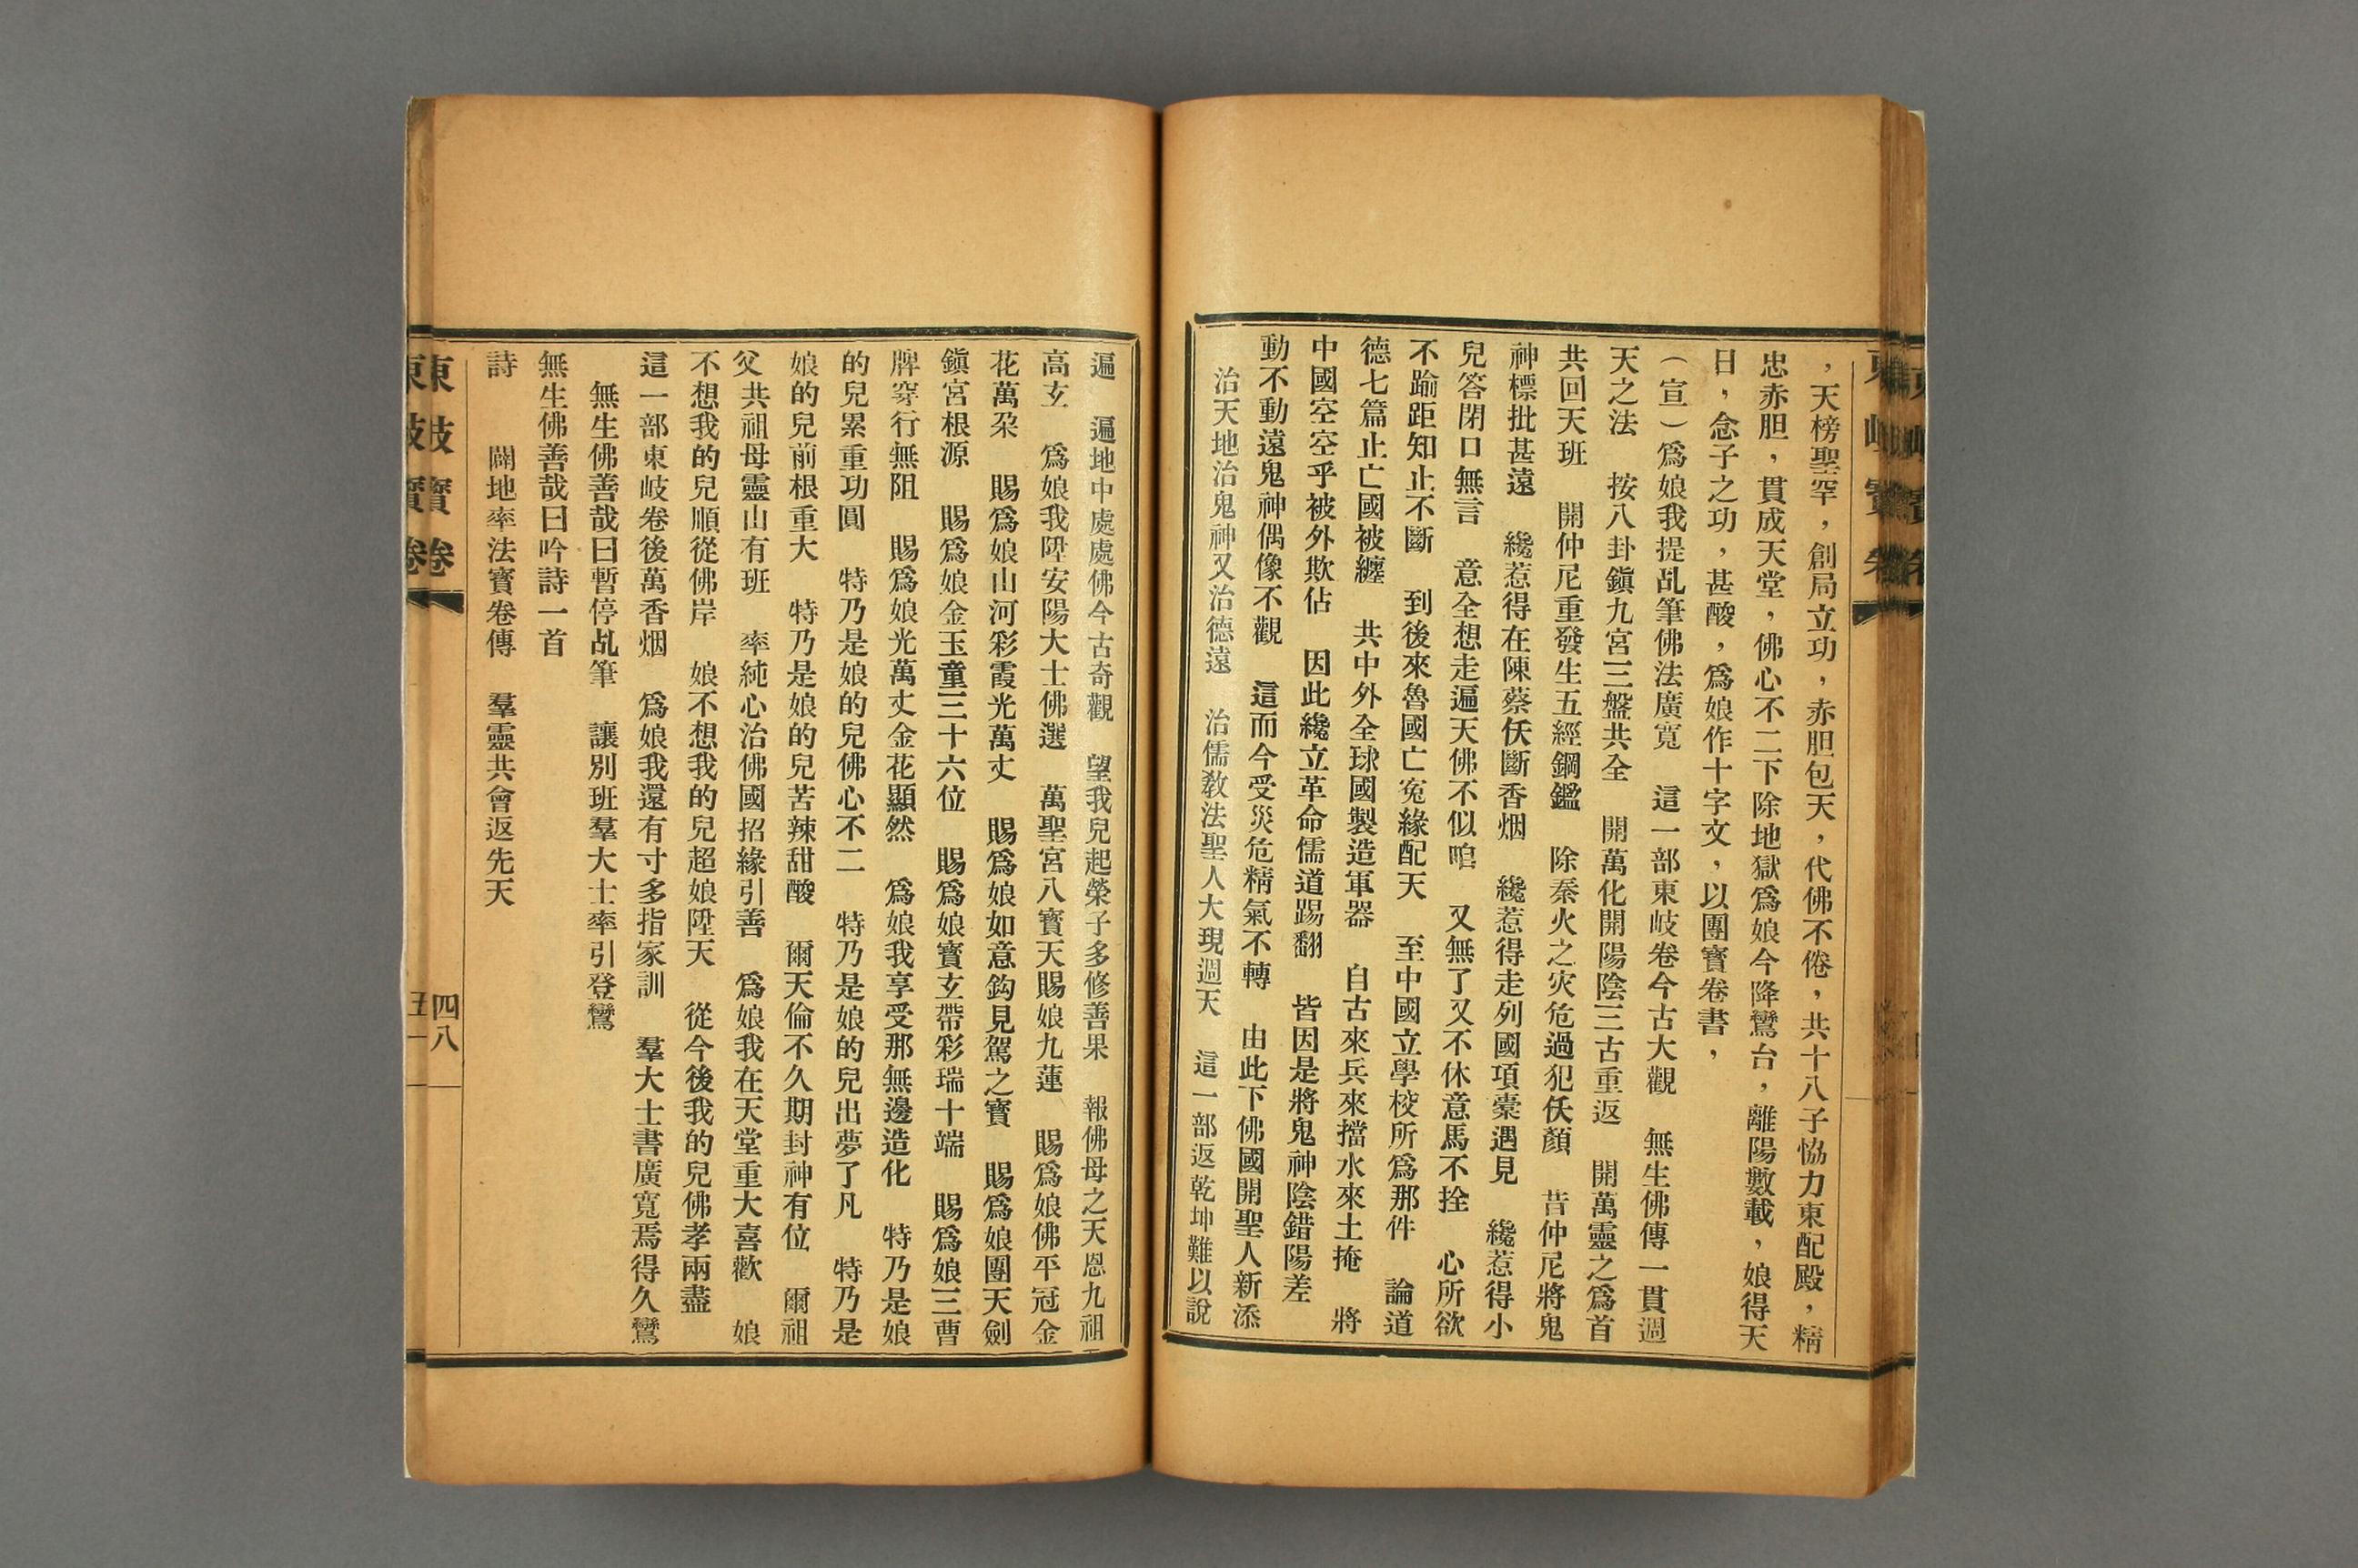 ，天榜聖罕，創局立功，赤胆包天，代佛不倦，共十八子恊力東配殿，精
忠赤胆，貫成天堂，佛心不二下除地獄爲娘今降鸞台，離陽數載，娘得天
日，念子之功，甚酸，爲娘作十字文，以團寶卷書，
（宣）爲娘我提乩筆佛法廣寬　這一部東岐卷今古大觀　無生佛傳一貫週
天之法　按八卦鎭九宮三盤共全　開萬化開陽陰三古重返　開萬靈之爲首
共回天班　開仲尼重發生五經鋼鑑　除秦火之灾危過犯仸顏　昔仲尼將鬼
神標批甚遠　纔惹得在陳蔡仸斷香烟　纔惹得走列國項橐遇見　纔惹得小
兒答閉口無言　意全想走遍天佛不似喒　又無了又不休意馬不拴　心所欲
不踰距知止不斷　到後來魯國亡冤緣配天　至中國立學校所爲那件　論道
德七篇止亡國被纏　共中外全球國製造軍器　自古來兵來擋水來土掩　將
中國空空乎被外欺佔　因此纔立革命儒道踢翻　皆因是將鬼神陰錯陽差
動不動遠鬼神偶像不觀　這而今受災危精氣不轉　由此下佛國開聖人新添
治天地治鬼神又治德遠　治儒教法聖人大現週天　這一部返乾坤難以說
遍　遍地中處處佛今古奇觀　望我兒起榮子多修善果　報佛母之天恩九祖
高玄　爲娘我陞安陽大士佛選　萬聖宮八寶天賜娘九蓮　賜爲娘佛平冠金
花萬朶　賜爲娘山河彩霞光萬丈　賜爲娘如意鈎見駕之寶　賜爲娘團天劍
鎭宮根源　賜爲娘金玉童三十六位　賜爲娘寶玄帶彩瑞十端　賜爲娘三曹
牌穿行無阻　賜爲娘光萬丈金花顯然　爲娘我享受那無邊造化　特乃是娘
的兒累重功圓　特乃是娘的兒佛心不二　特乃是娘的兒出夢了凡　特乃是
娘的兒前根重大　特乃是娘的兒苦辣甜酸　爾天倫不久期封神有位　爾祖
父共祖母靈山有班　率純心治佛國招緣引善　爲娘我在天堂重大喜歡　娘
不想我的兒順從佛岸　娘不想我的兒超娘陞天　從今後我的兒佛孝兩盡
這一部東岐卷後萬香烟　爲娘我還有寸多指家訓　羣大士書廣寬焉得久鸞
無生佛善哉曰暫停乩筆　讓別班羣大士率引登鸞
無生佛善哉曰吟詩一首
詩　闢地率法寶卷傳　羣靈共會返先天
東岐寶卷
四八